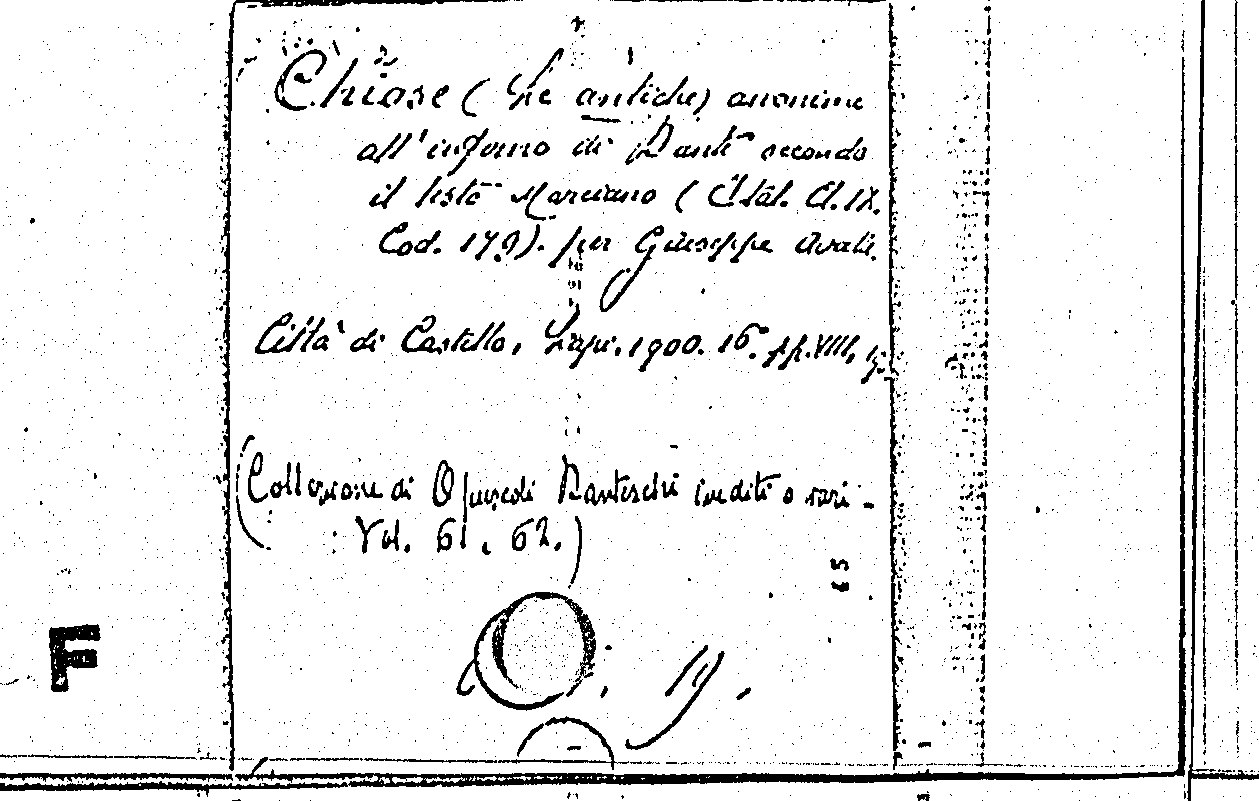 Chiose (Le antiche) anonime
all'inferno di Dante secondo
il testo Marciano (Ital. Cl. IX.
Cod. 179). per Giuseppe Avalle.
Città di Castello, Lapi. 1900. 16°. pp. VIII,
(Collezione di Opuscoli Danteschi inediti o rari -
Vol. 61. 62.)
19.
F